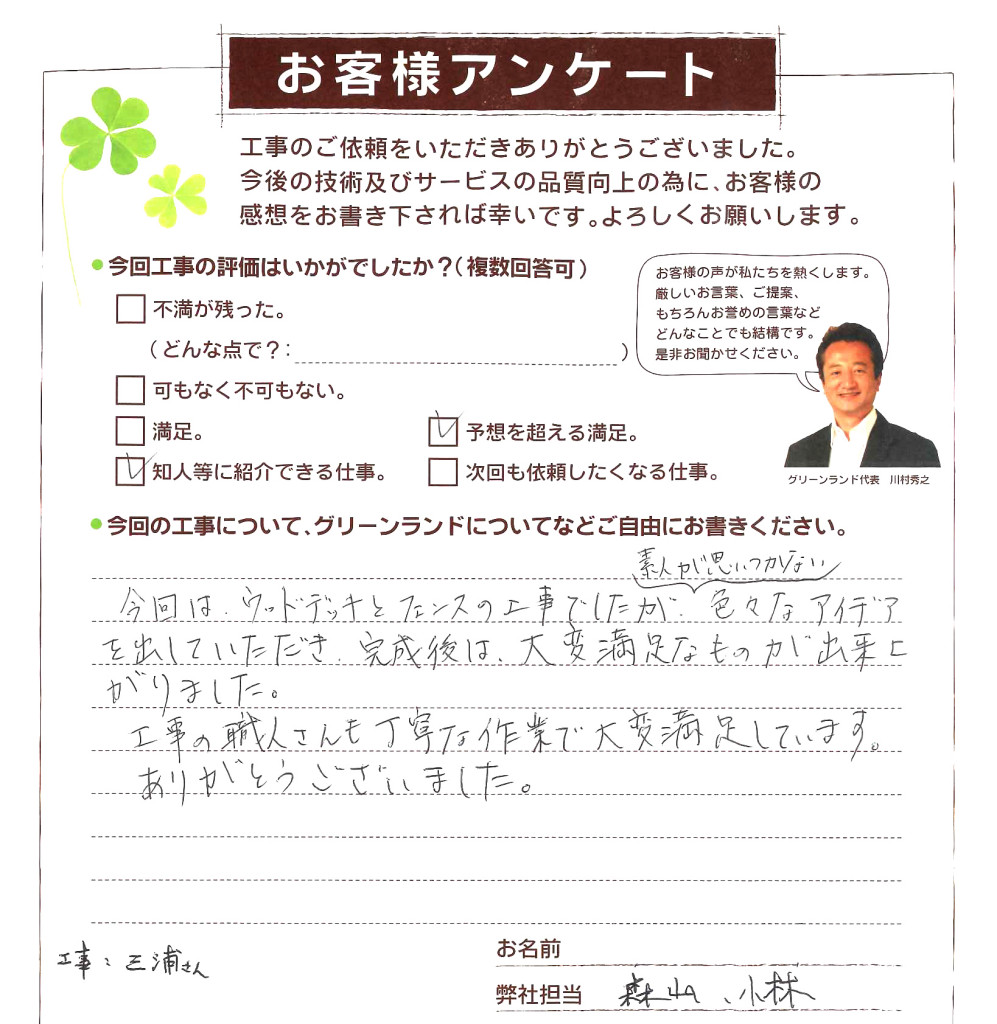 お客様アンケート
工事のご依頼をいただきありがとうございました。
今後の技術及びサービスの品質向上の為に、お客様の
感想をお書き下されば幸いです。よろしくお願いします。
今回工事の評価はいかがでしたか？（複数回答可）
不満が残った。
（どんな点で？： ）
可もなく不可もない。
満足。
予想を超える満足。
知人等に紹介できる仕事。
次回も依頼したくなる仕事。
お客様の声が私たちを熱くします。
厳しいお言葉、ご提案、
もちろんお誉めの言葉など
どんなことでも結構です。
是非お聞かせください。
グリーンランド代表 川村秀之
今回の工事について、グリーンランドについてなどご自由にお書きください。
素人が思いつかない
今回は、ウッドデッキとフェンスの工事でしたが、色々なアイデア
を出していただき、完成後は、大変満足なものが出来上
がりました。
工事の職人さんも丁寧な作業で大変満足しています。
ありがとうございました。
工事：三浦さん
お名前
弊社担当 森山、小林